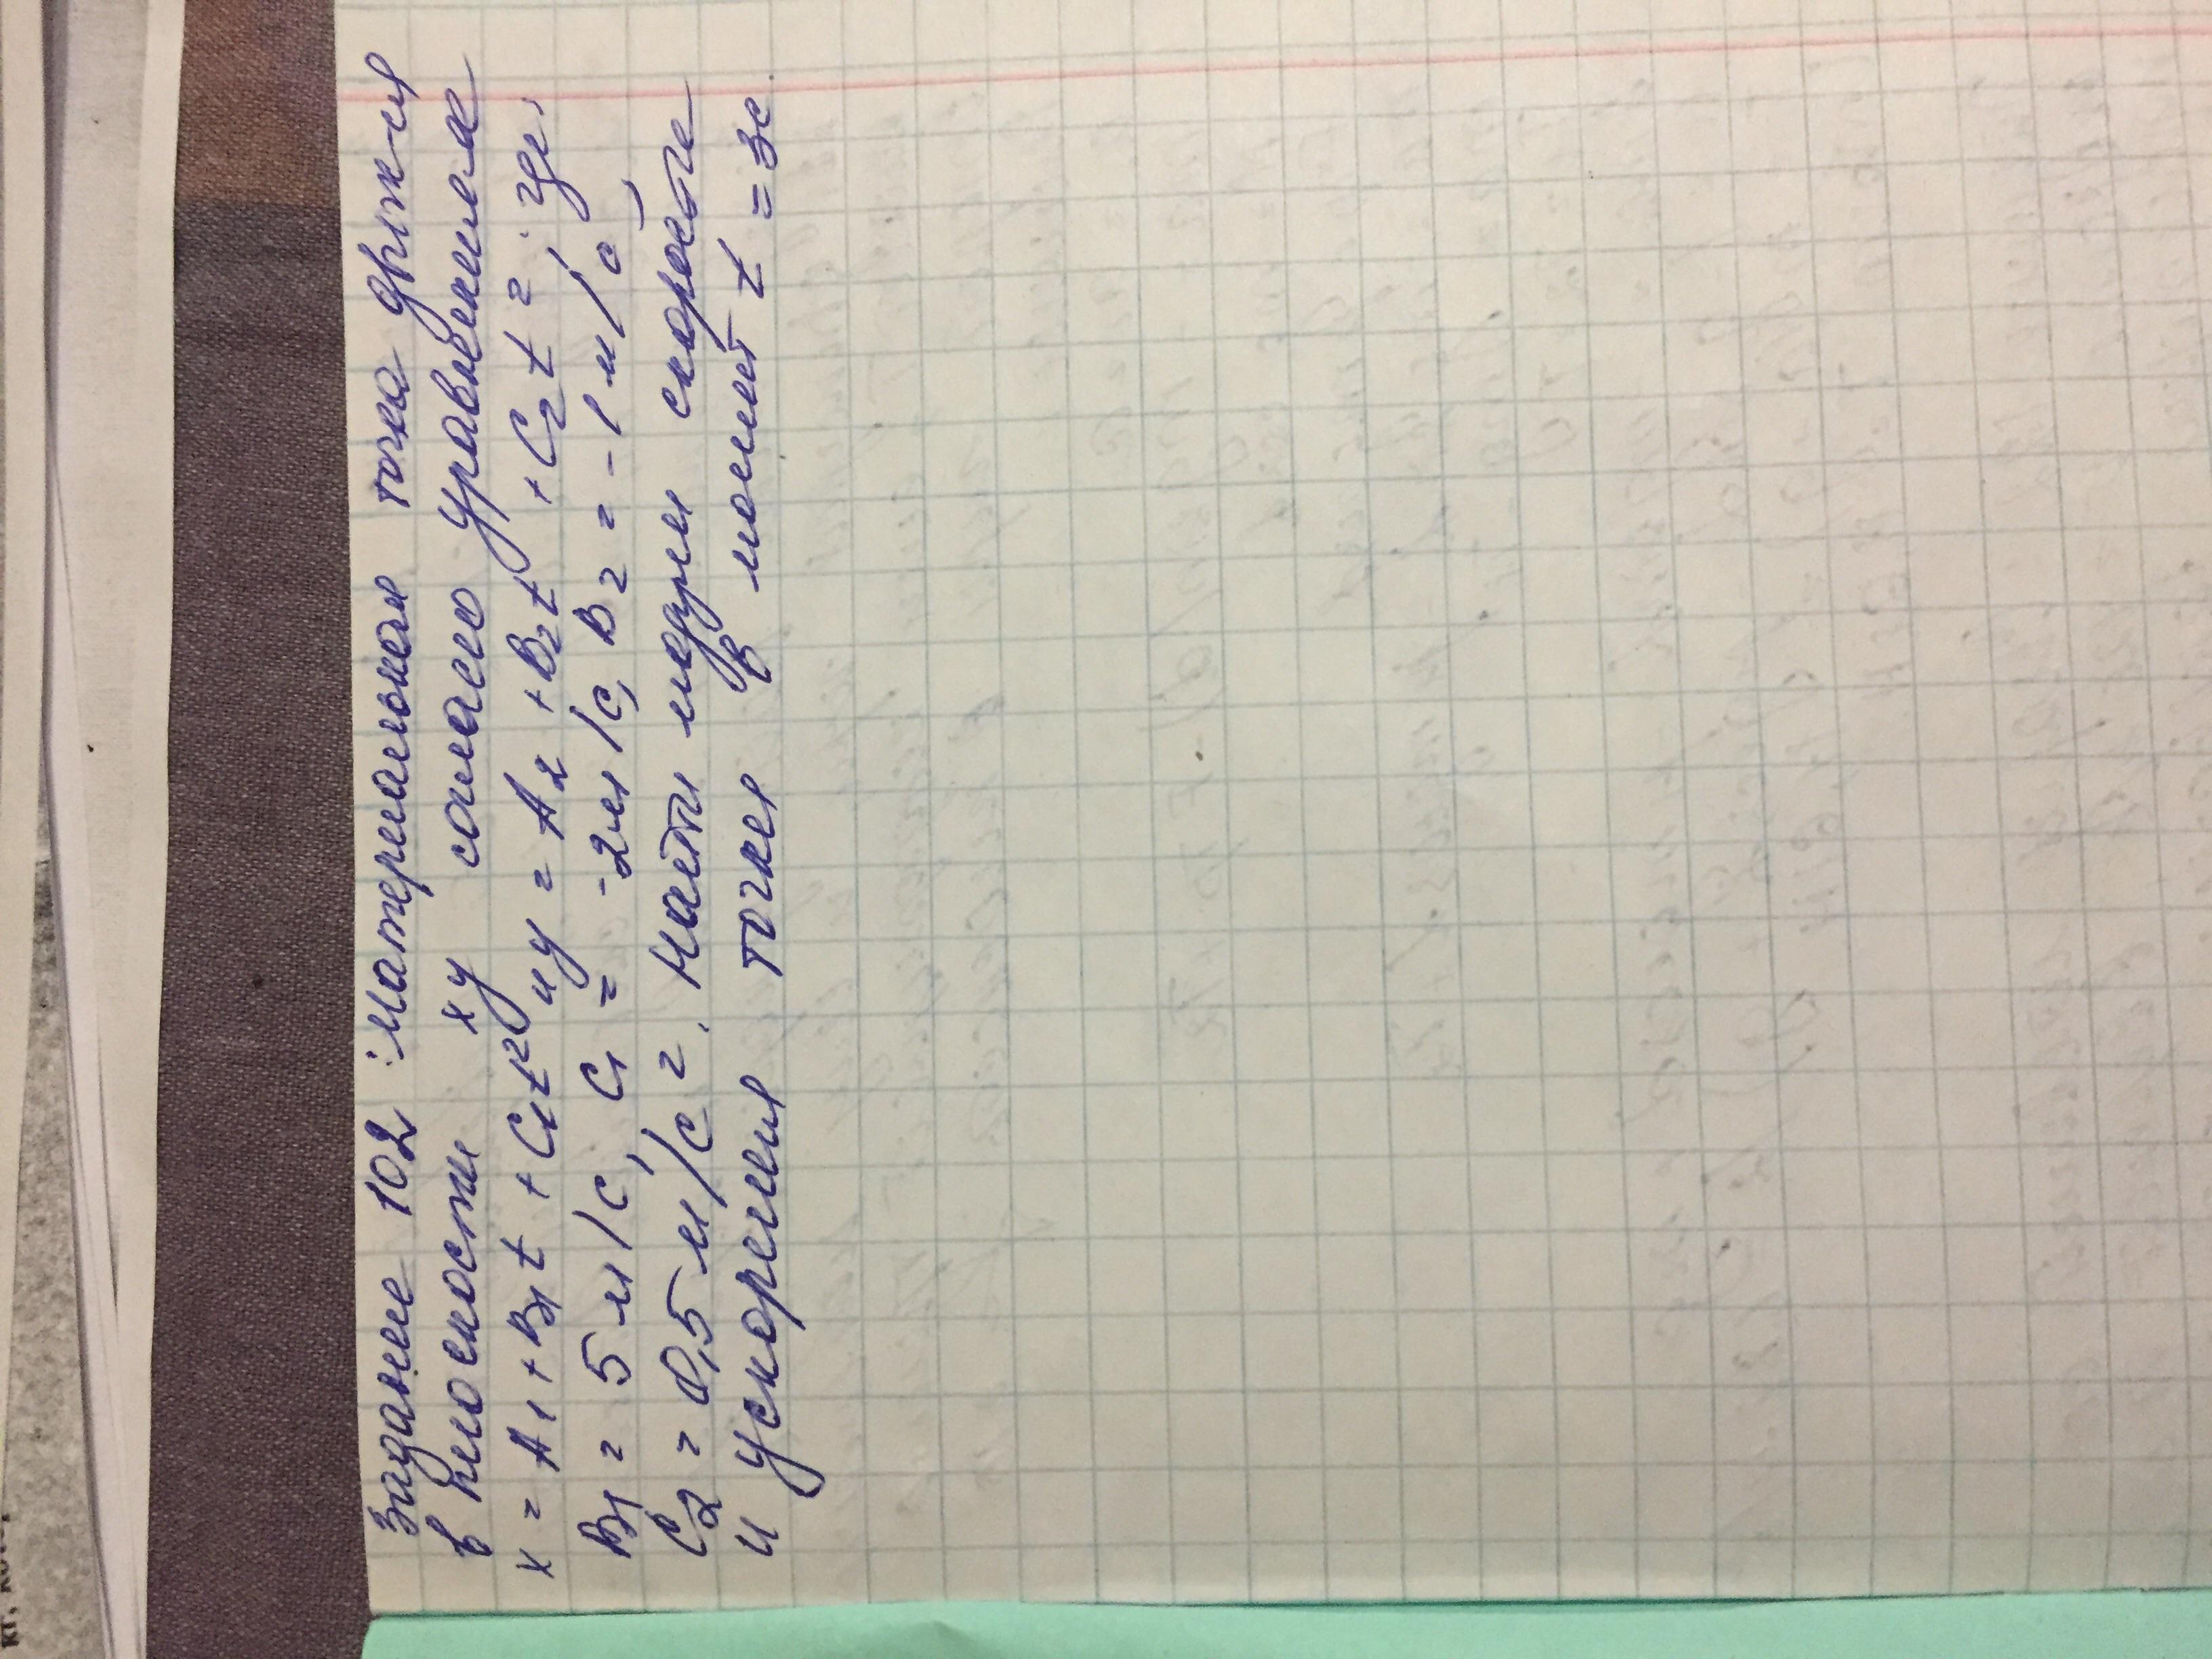 Задание 102: Материальная точка движ-ся
в плоскости xy согласно уравнениям
x = A1 + B1t + C1t² и y = A2 + B2t + C2t², где,
B1 = 5 м/с, C1 = -2м/с, B2 = -1 м/с,
C2 = 0,5 м/с². Найти модули скорости
и ускорения точки в момент t = 3с